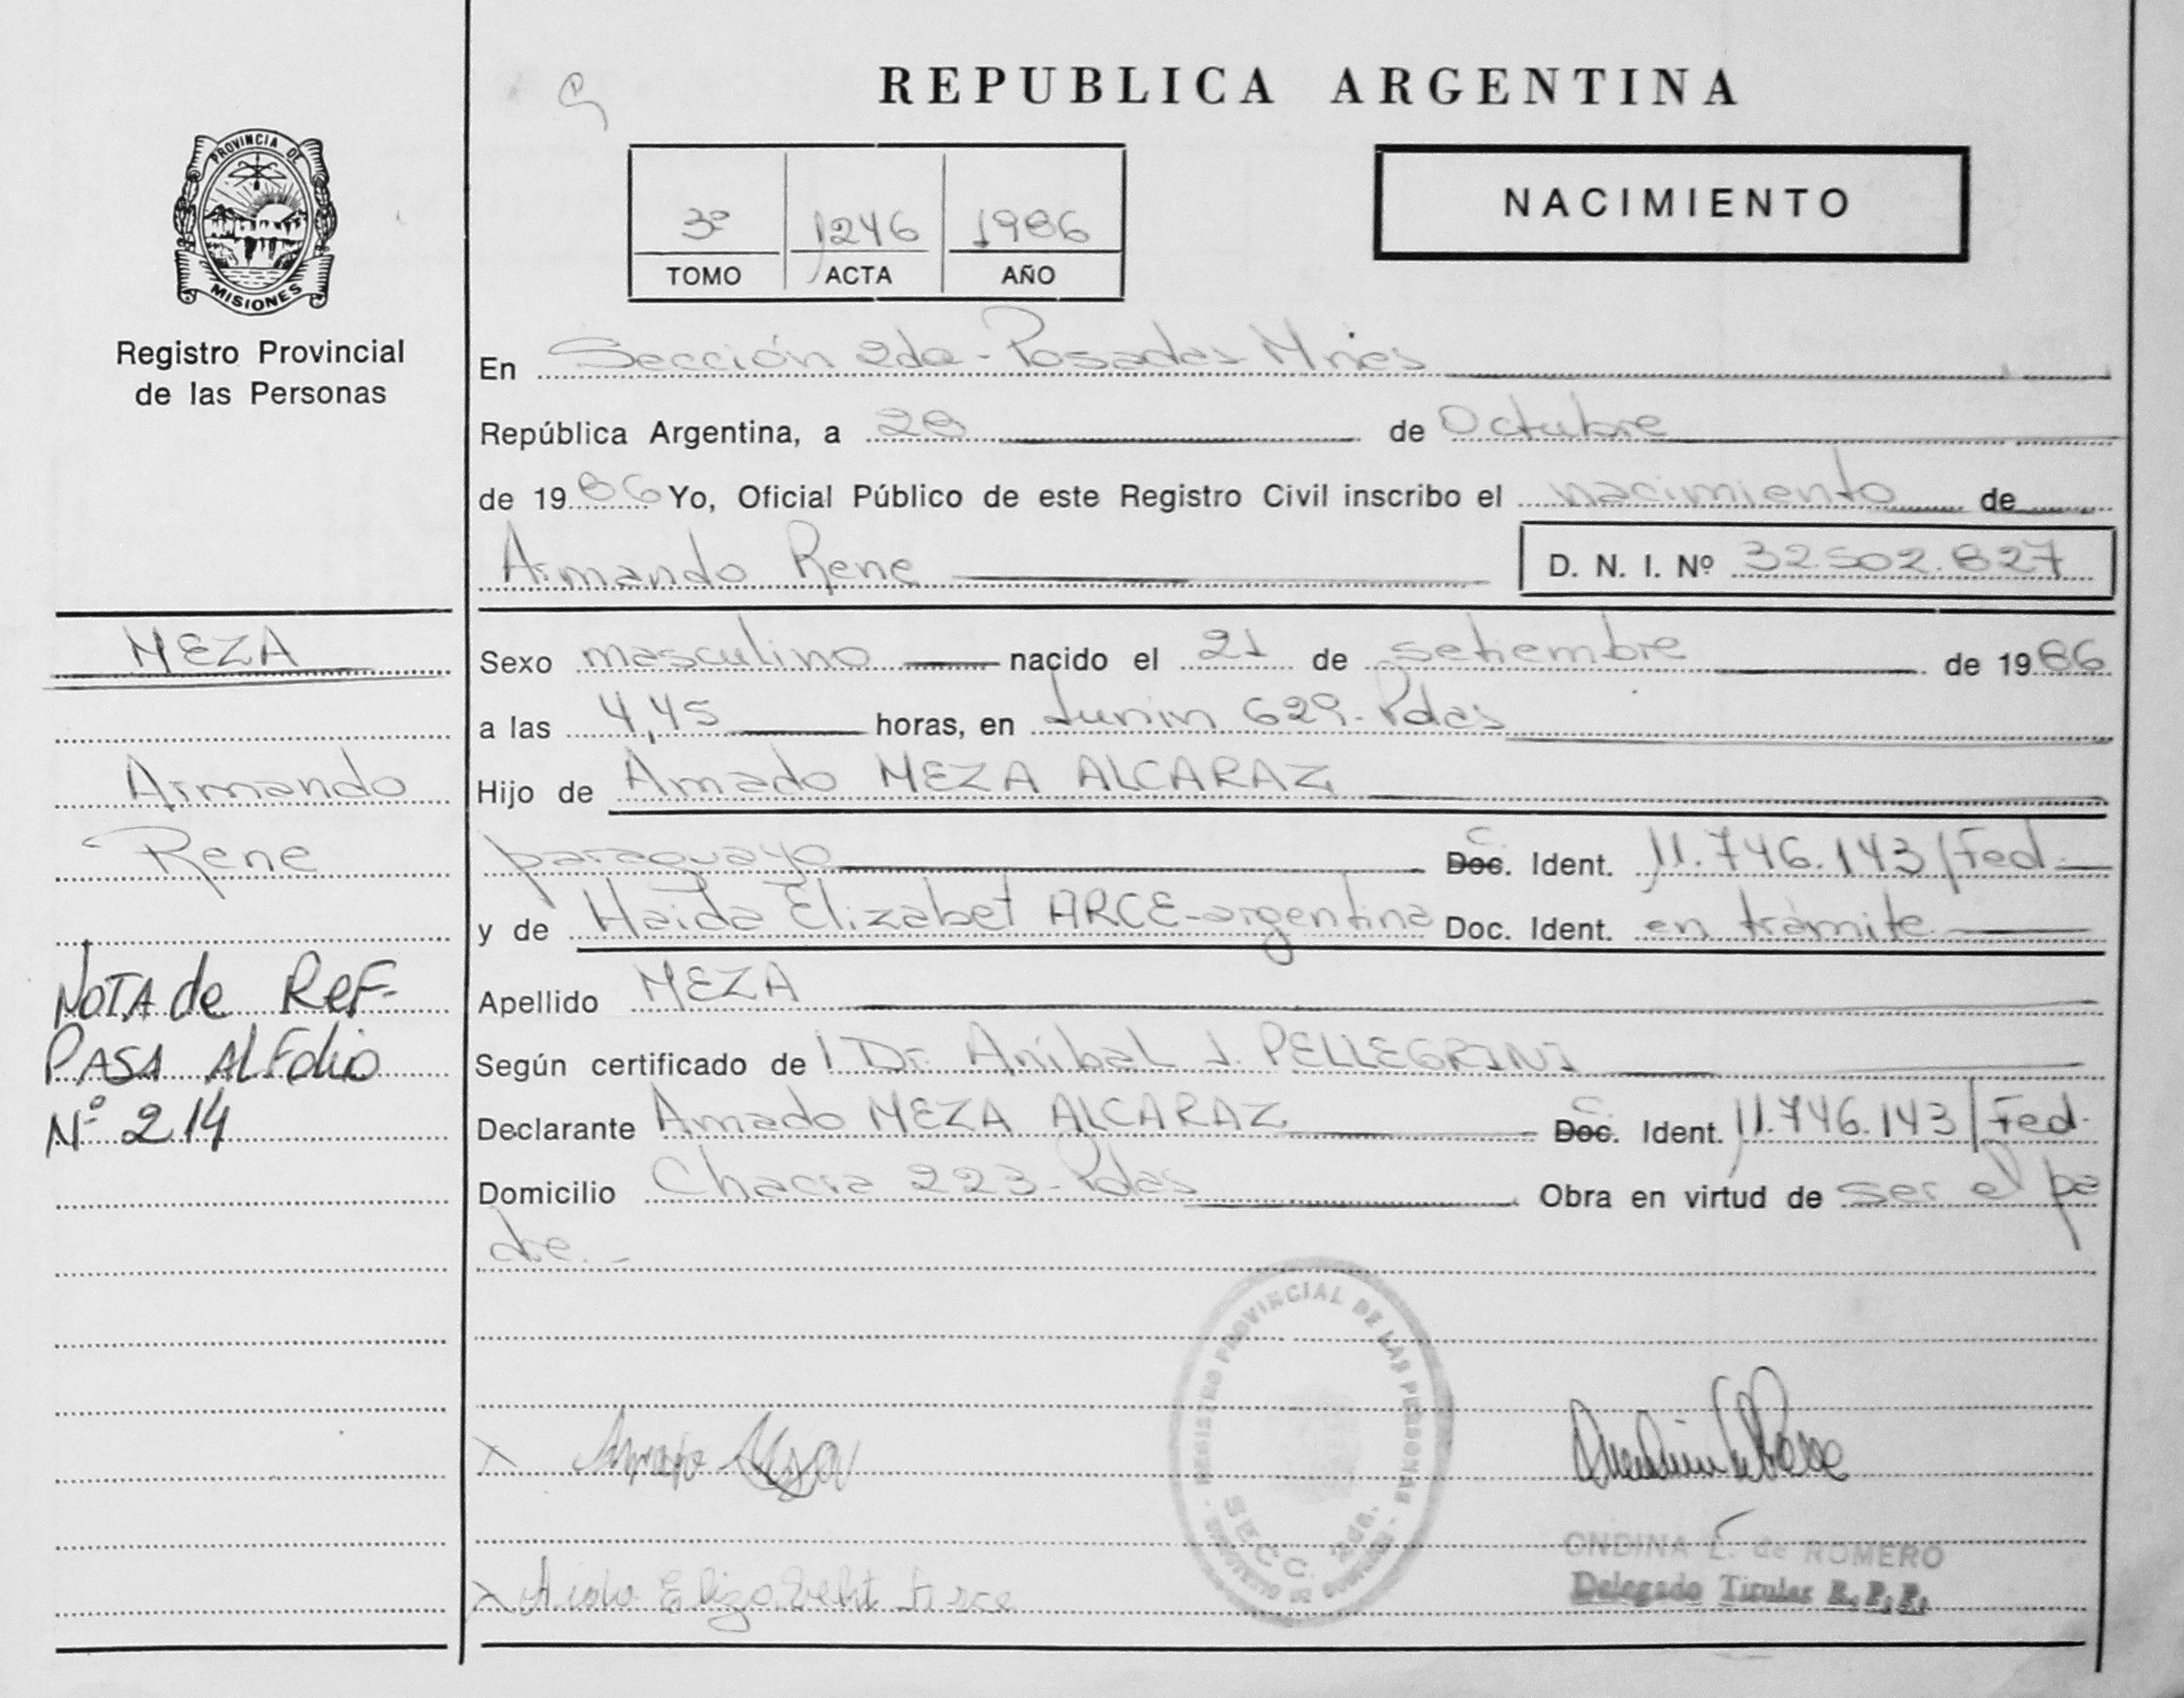 REPUBLICA ARGENTINA
PROVINCIA DE
MISIONES
Registro Provincial
de las Personas
3º 1246 1986
TOMO ACTA AÑO
NACIMIENTO
En Sección 2da - Posadas Mnes
República Argentina, a 28 de Octubre
de 1986 Yo, Oficial Público de este Registro Civil inscribo el nacimiento de
Armando Rene D. N. I. Nº 32.502.827
MEZA
Armando
Rene
NOTA de REF-
PASA AL Folio
Nº 214
Sexo masculino nacido el 21 de setiembre de 1986
a las 4,45 horas, en Junin 629 - Pdas
Hijo de Amado MEZA ALCARAZ
paraguayo Doc. C. Ident. 11.746.143/Fed.
y de Haida Elizabet ARCE - argentina Doc. Ident. en trámite
Apellido MEZA
Según certificado de l Dr. Aníbal J. PELLEGRINI
Declarante Amado MEZA ALCARAZ Doc. C. Ident. 11.746.143/Fed.
Domicilio Chacra 223 - Pdas Obra en virtud de ser el pa
dre. -
REGISTRO PROVINCIAL DE LAS PERSONAS
SECC. 2da.
ONDINA L. de ROMERO
Delegado Titular R. P. P.